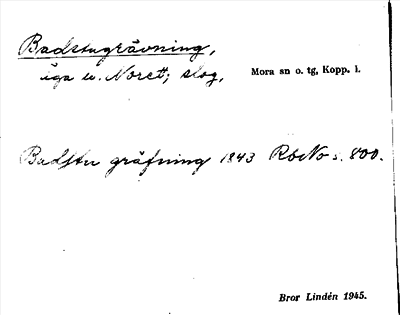 Badstugrävning,
äga u. Noret; slog, Mora sn o. tg, Kopp. l.
Badstu gräfning 1843 RöNo s. 800.
Bror Lindén 1945.